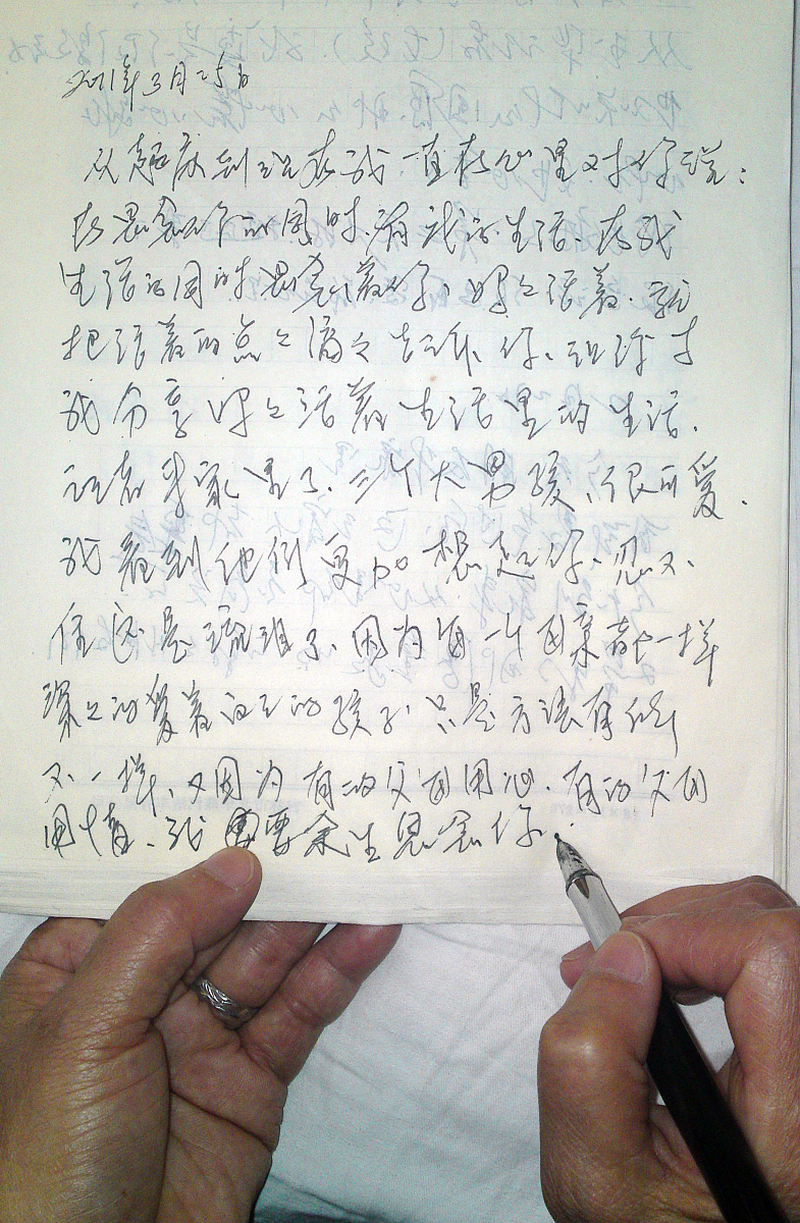 2011年3月25日
从超庆到现在我一直在心里对你说:
在思念你的同时.有我的生活、在我
生活的同时思念着你、好好活着.就
把活着的点点滴滴告诉你、让你才
我分享好好活着生活里的生活.
现在我家里了.三个大男孩、很可爱.
我看到他们更加想起你、忍不
住还是流泪了、因为每一个母亲都一样
深深的爱着自己的孩子、只是方法有所
不一样、又因为有的父母用心.有的父母
用情、我需要余生思念你.